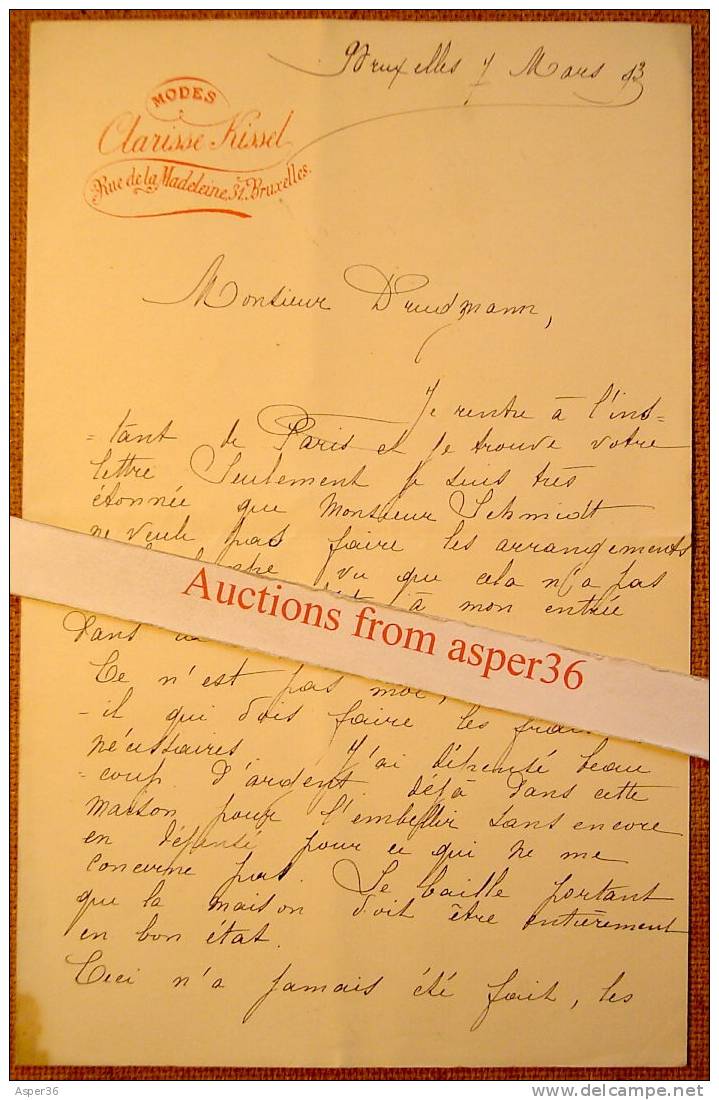 Bruxelles 7 Mars 93
MODES
Clarisse Kissel
Rue de la Madeleine, 51, Bruxelles.
Monsieur
Je rentre à l'ins-
-tant de Paris et je trouve votre
lettre Seulement je suis très
étonnée que Monsieur Schmidt
ne veule pas faire les arrangements
vu que cela n'a pas
à mon entrée
Dans
Auctions from asper36
Ce n'est pas moi,
-il qui dois faire les frais
nécessaires. J'ai dépensé beau
-coup d'argent déjà dans cette
maison pour l'embellir sans encore
en dépensé pour ce qui ne me
concerne pas. Le baille portant
que la maison doit être entièrement
en bon état.
Ceci n'a jamais été fait, les
Asper36
http://www.delcampe.net